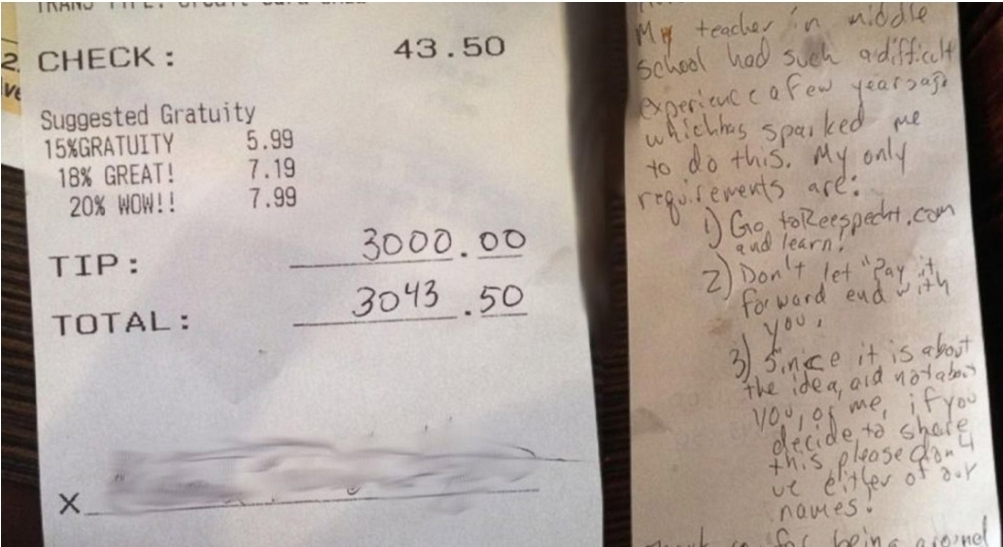 CHECK: 43.50
Suggested Gratuity
15%GRATUITY 5.99
18% GREAT! 7.19
20% WOW!! 7.99
TIP: 3000.00
TOTAL: 3043.50
X
My teacher in middle
school had such a difficult
experience a few years ago
which has sparked me
to do this. My only
requirements are:
1) Go to Reespecht.com
and learn.
2) Don't let "Pay it
forward end with
you.
3) Since it is about
the idea, and not about
you, or me, if you
decide to share
this please don't
use either of our
names.
for being around